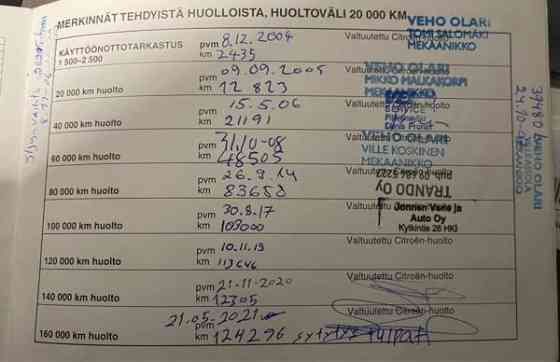 MERKINNÄT TEHDYISTÄ HUOLLOISTA, HUOLTOVÄLI 20 000 KM
VEHO OLARI
TOMI SALOMÄKI
MEKAANIKKO
KÄYTTÖÖNOTTOTARKASTUS
1 500-2 500
pvm 8.12.2004
km 2435
Valtuutettu Citroën-huolto
20 000 km huolto
pvm 09.09.2005
km 12 823
Valtuutettu Citroën-huolto
VEHO OLARI
MIKKO MALKAKORPI
MEKAANIKKO
40 000 km huolto
pvm 15.5.06
km 21191
Valtuutettu Citroën-huolto
SERVICE
60 000 km huolto
pvm 31.10-08
km 48505
Valtuutettu Citroën-huolto
VEHO OLARI
VILLE KOSKINEN
MEKAANIKKO
80 000 km huolto
pvm 26.9.14
km 83658
Valtuutettu Citroën-huolto
TRANDO Oy
100 000 km huolto
pvm 30.8.17
km 103000
Valtuutettu Citroën-huolto
Auto Oy
Kylkintie 26 HKI
120 000 km huolto
pvm 10.11.19
km 113646
Valtuutettu Citroën-huolto
140 000 km huolto
pvm 21-11-2020
km 12305
Valtuutettu Citroën-huolto
160 000 km huolto
pvm 21.05-2021
km 124296 sytytys tulpat
Valtuutettu Citroën-huolto
37480
VEHO OLARI
24.10
MEKAANIKKO